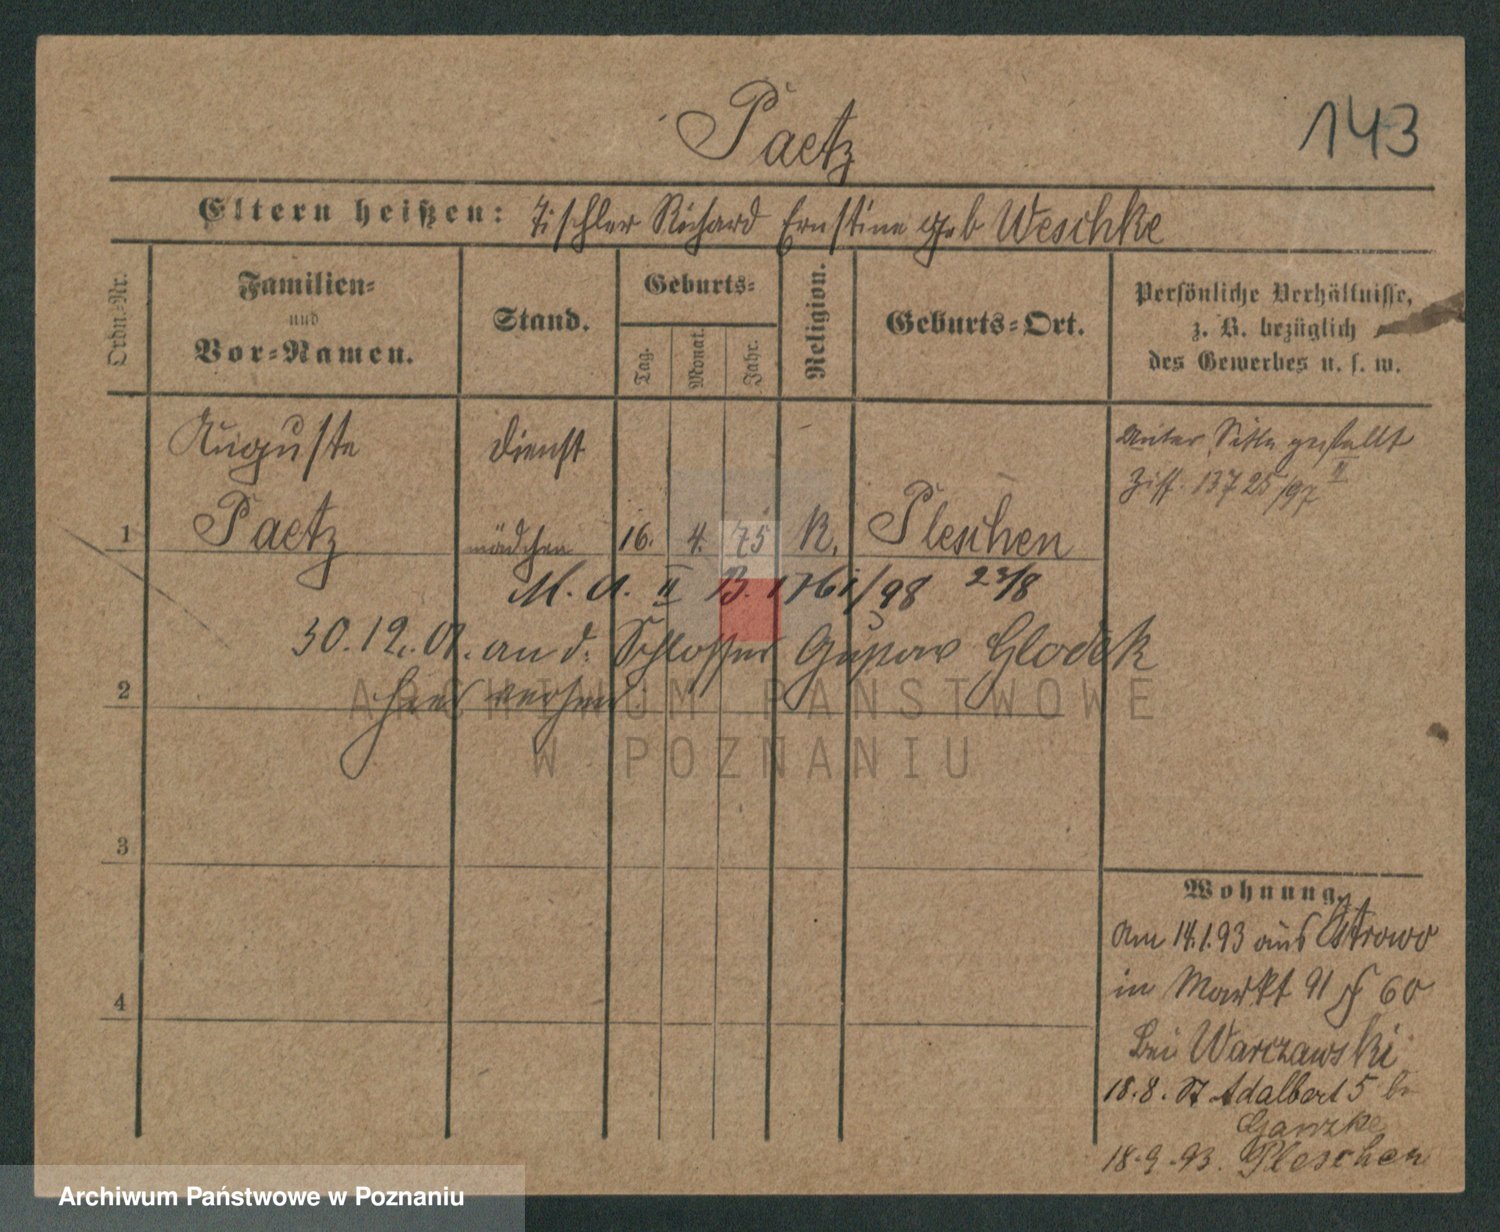 Paetz
143
Eltern heißen: Tischler Richard Ernstine geb Weschke
Ordn.-Nr.
Familien-
und
Vor-Namen.
Stand.
Geburts-
Tag.
Monat.
Jahr.
Religion.
Geburts-Ort.
Persönliche Verhältnisse,
z. B. bezüglich
des Gewerbes u. s. w.
Auguste dienst
1 Paetz mädchen 16. 4. 75 K. Pleschen
Unter Sitte gestellt
Ziff. 13725/97 II
M. A. II B. 1761/98 23/8
30.12.01. an d. Schlosser Gustav Glodek
2 hier verh
3
4
Wohnung.
Am 14.1.93 aus Ostrowo
in Markt 91 60
bei Warczawski
18.8. St Adalbert 5 bei
Ganzke
18.9.93. Pleschen
ARCHIWUM PAŃSTWOWE
W POZNANIU
Archiwum Państwowe w Poznaniu